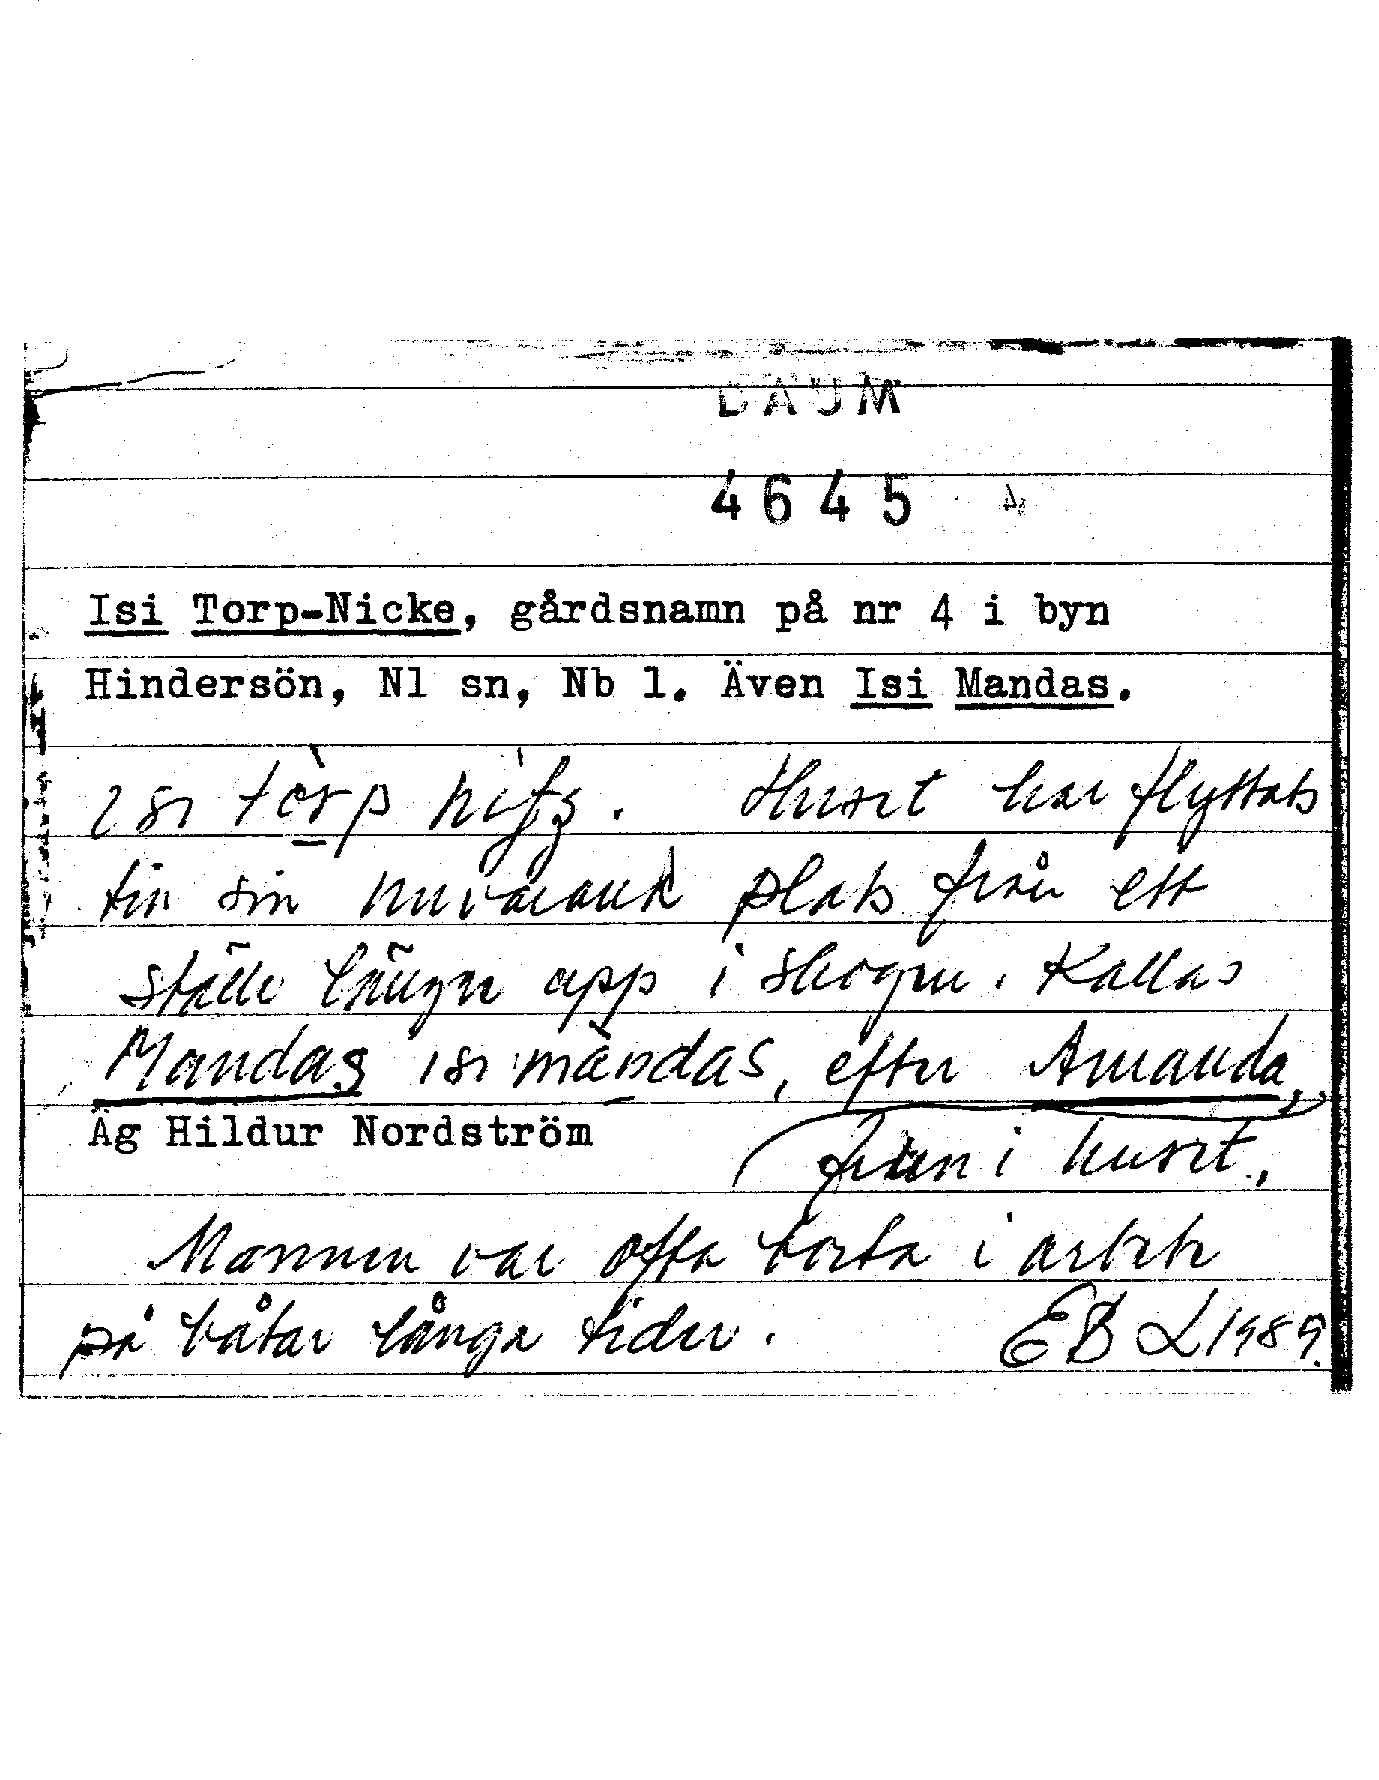 DAUM
4645
Isi Torp-Nicke, gårdsnamn på nr 4 i byn
Hindersön, Nl sn, Nb l. Även Isi Mandas.
isi tòrp Huset har flyttats
till sin nuvarande plats från ett
ställe längre upp i skogen. Kallas
Mandas isi màndas, efter Amanda,
Äg Hildur Nordström
frun i huset.
Mannen var ofta borta i arbete
på båtar långa tider. EB 1989.